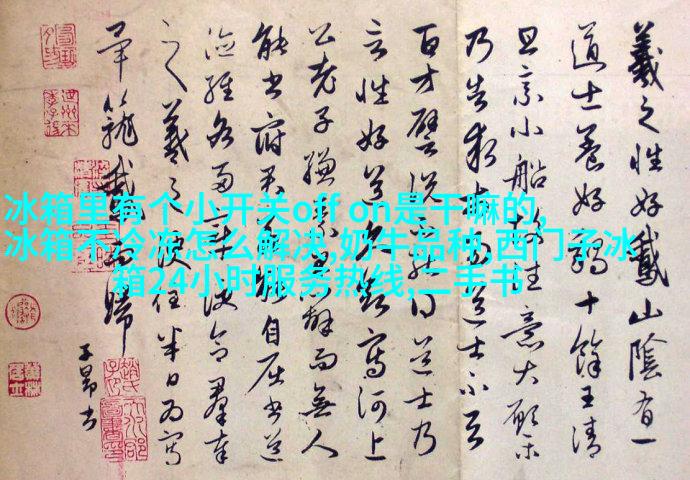 冰箱里有个小开关off on是干嘛的,
冰箱不冷冻怎么解决,奶牛品种,西门子冰
箱24小时服务热线,二手书
羲之性好鵞山陰有一
道士養好鵝十餘王清
旦乘小船故往意大願樂
乃告求市易道士不與
百方譬說不能得道士乃
言性好道久欲寫河上
公老子縑素早辦而無人
能書府君若能自屈書道
德經各兩章便合群奉
羲之便住半日為寫
畢籠鵞而歸
子昂書